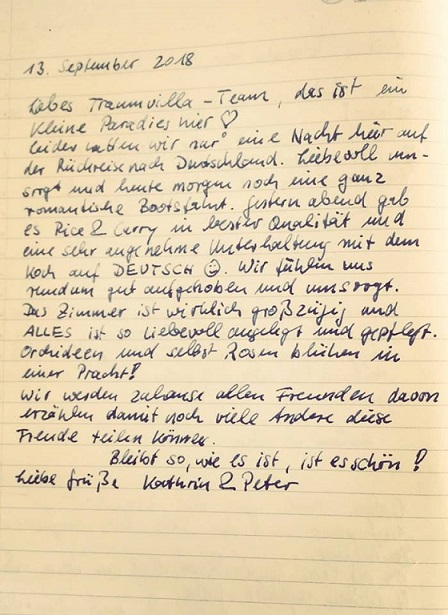 13. September 2018
Liebes Traumvilla-Team, das ist ein
kleine Paradies hier ♡
Leider hatten wir nur eine Nacht hier auf
der Rückreise nach Deutschland. Liebevoll um-
sorgt und heute morgen noch eine ganz
romantische Bootsfahrt. Gestern abend gab
es Rice & Curry in bester Qualität und
eine sehr angenehme Unterhaltung mit dem
Koch auf DEUTSCH ☺. Wir fühlen uns
rundum gut aufgehoben und umsorgt.
Das Zimmer ist wirklich großzügig und
ALLES ist so liebevoll angelegt und gepflegt.
Orchideen und selbst Rosen blühen in
einer Pracht!
Wir werden zuhause allen Freunden davon
erzählen damit noch viele Andere diese
Freude teilen können.
Bleibt so, wie es ist, ist es schön!
Liebe Grüße Kathrin & Peter